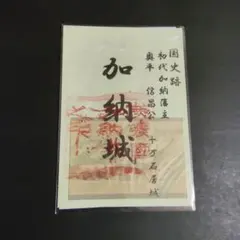 国史跡
初代加納藩主
奥平 信昌公 十万石居城
加納城